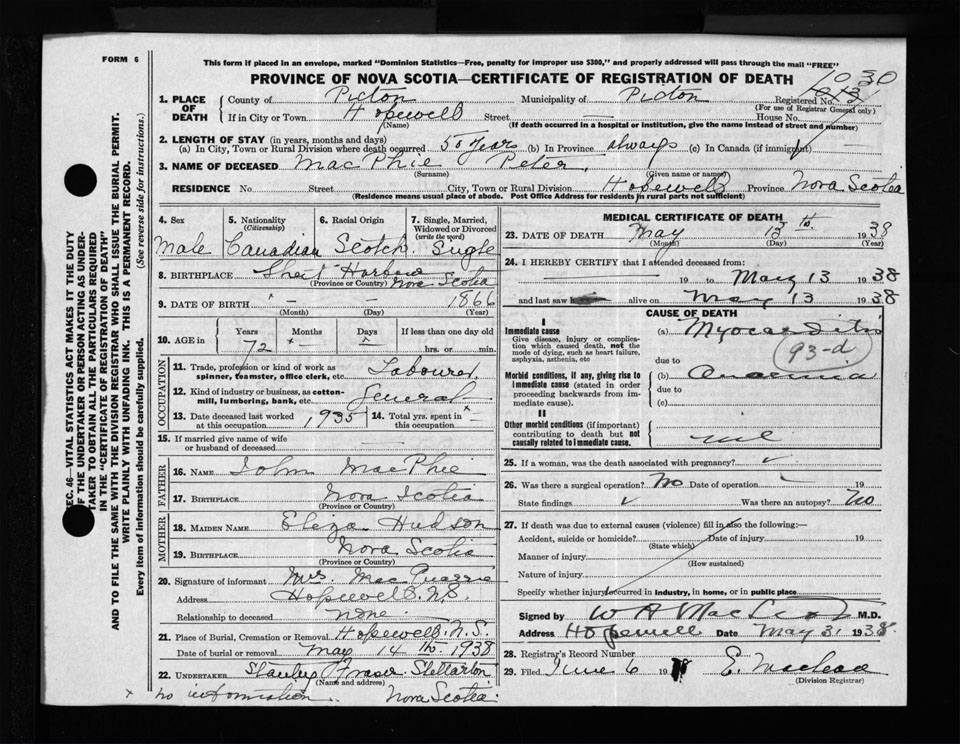 FORM 6
This form if placed in an envelope, marked "Dominion Statistics—Free, penalty for improper use $300," and properly addressed will pass through the mail "FREE"
PROVINCE OF NOVA SCOTIA—CERTIFICATE OF REGISTRATION OF DEATH
1030
1. PLACE OF DEATH County of Picton Municipality of Picton Registered No.
(For use of Registrar General only)
If in City or Town Hopewell Street — House No.
(Name) (If death occurred in a hospital or institution, give the name instead of street and number)
2. LENGTH OF STAY (in years, months and days)
(a) In City, Town or Rural Division where death occurred 50 Years (b) In Province always (c) In Canada (if immigrant) —
3. NAME OF DECEASED MacPhie Peter
(Surname) (Given name or names)
RESIDENCE No Street City, Town or Rural Division Hopewell Province Nova Scotia
(Residence means usual place of abode. Post Office Address for residents in rural parts not sufficient)
4. Sex 5. Nationality (Citizenship) 6. Racial Origin 7. Single, Married, Widowed or Divorced (write the word)
Male Canadian Scotch Single
8. BIRTHPLACE Sheet Harbour Nova Scotia
(Province or Country)
9. DATE OF BIRTH × — — 1866
(Month) (Day) (Year)
10. AGE in Years Months Days If less than one day
72 × — — hrs. or min.
OCCUPATION
11. Trade, profession or kind of work as spinner, teamster, office clerk, etc. Labourer
12. Kind of industry or business, as cotton-mill, lumbering, bank, etc. General
13. Date deceased last worked at this occupation 1935 14. Total yrs. spent in this occupation × —
15. If married give name of wife or husband of deceased —
FATHER
16. NAME John MacPhie
17. BIRTHPLACE Nova Scotia
(Province or Country)
MOTHER
18. MAIDEN NAME Eliza Hudson
19. BIRTHPLACE Nova Scotia
(Province or Country)
20. Signature of informant Mrs MacQuarrie
Address Hopewell, N.S.
Relationship to deceased none
21. Place of Burial, Cremation or Removal Hopewell N.S.
Date of burial or removal May 14th 1938
22. UNDERTAKER Stanley Fraser Stellarton
(Name and address)
× no information. Nova Scotia
MEDICAL CERTIFICATE OF DEATH
23. DATE OF DEATH May 13th 1938
(Month) (Day) (Year)
24. I HEREBY CERTIFY that I attended deceased from:
— 19 to May 13 1938
and last saw h alive on May 13 1938
CAUSE OF DEATH
I
Immediate cause (a) Myocarditis
Give disease, injury or complication which caused death, not the mode of dying, such as heart failure, asphyxia, asthenia, etc
93-d
due to
Morbid conditions, if any, giving rise to immediate cause (stated in order proceeding backwards from immediate cause).
(b) Anaemia
due to
(c)
II
Other morbid conditions (if important) contributing to death but not causally related to immediate cause.
nil
25. If a woman, was the death associated with pregnancy?
26. Was there a surgical operation? No Date of operation —
State findings Was there an autopsy? No
27. If death was due to external causes (violence) fill in also the following:—
Accident, suicide or homicide? Date of injury 19
(State which)
Manner of injury
(How sustained)
Nature of injury
Specify whether injury occurred in industry, in home, or in public place
Signed by M.D.
Address Hopewell Date May 31 1938
28. Registrar's Record Number
29. Filed June 6 19 E. Maclead
(Division Registrar)
SEC. 46—VITAL STATISTICS ACT MAKES IT THE DUTY
OF THE UNDERTAKER OR PERSON ACTING AS UNDER-
TAKER TO OBTAIN ALL THE PARTICULARS REQUIRED
IN THE "CERTIFICATE OF REGISTRATION OF DEATH"
AND TO FILE THE SAME WITH THE DIVISION REGISTRAR WHO SHALL ISSUE THE BURIAL PERMIT.
WRITE PLAINLY WITH UNFADING INK. THIS IS A PERMANENT RECORD.
Every item of information should be carefully supplied. (See reverse side for instructions.)